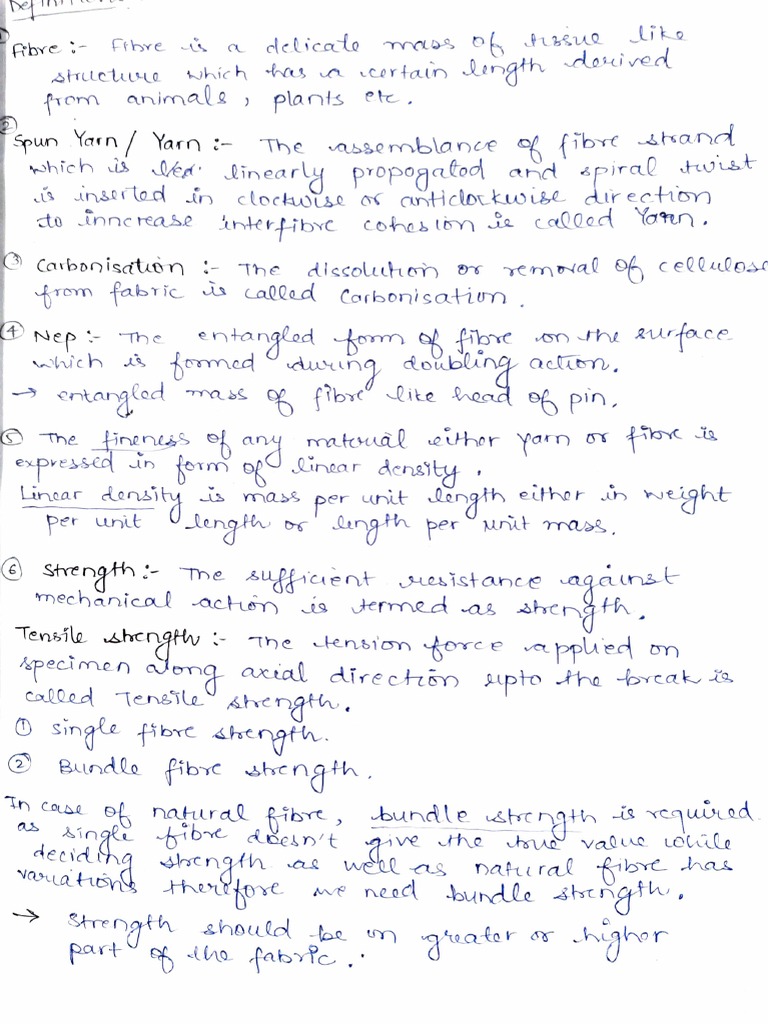 Definitions
① Fibre :- Fibre is a delicate mass of tissue like
structure which has a certain length derived
from animals, plants etc.
② Spun Yarn / Yarn :- The assemblance of fibre strand
which is linearly propogated and spiral twist
is inserted in clockwise or anticlockwise direction
to inncrease interfibre cohesion is called Yarn.
③ Carbonisation :- The dissolution or removal of cellulose
from fabric is called Carbonisation.
④ Nep :- The entangled form of fibre on the surface
which is formed during doubling action.
→ entangled mass of fibre like head of pin.
⑤ The fineness of any material either yarn or fibre is
expressed in form of linear density.
Linear density is mass per unit length either in weight
per unit length or length per unit mass.
⑥ Strength :- The sufficient resistance against
mechanical action is termed as strength.
Tensile strength :- The tension force applied on
specimen along axial direction upto the break is
called Tensile strength.
① Single fibre strength.
② Bundle fibre strength.
In case of natural fibre, bundle strength is required
as single fibre doesn't give the true value while
deciding strength as well as natural fibre has
variations therefore we need bundle strength.
→ Strength should be on greater or higher
part of the fabric.